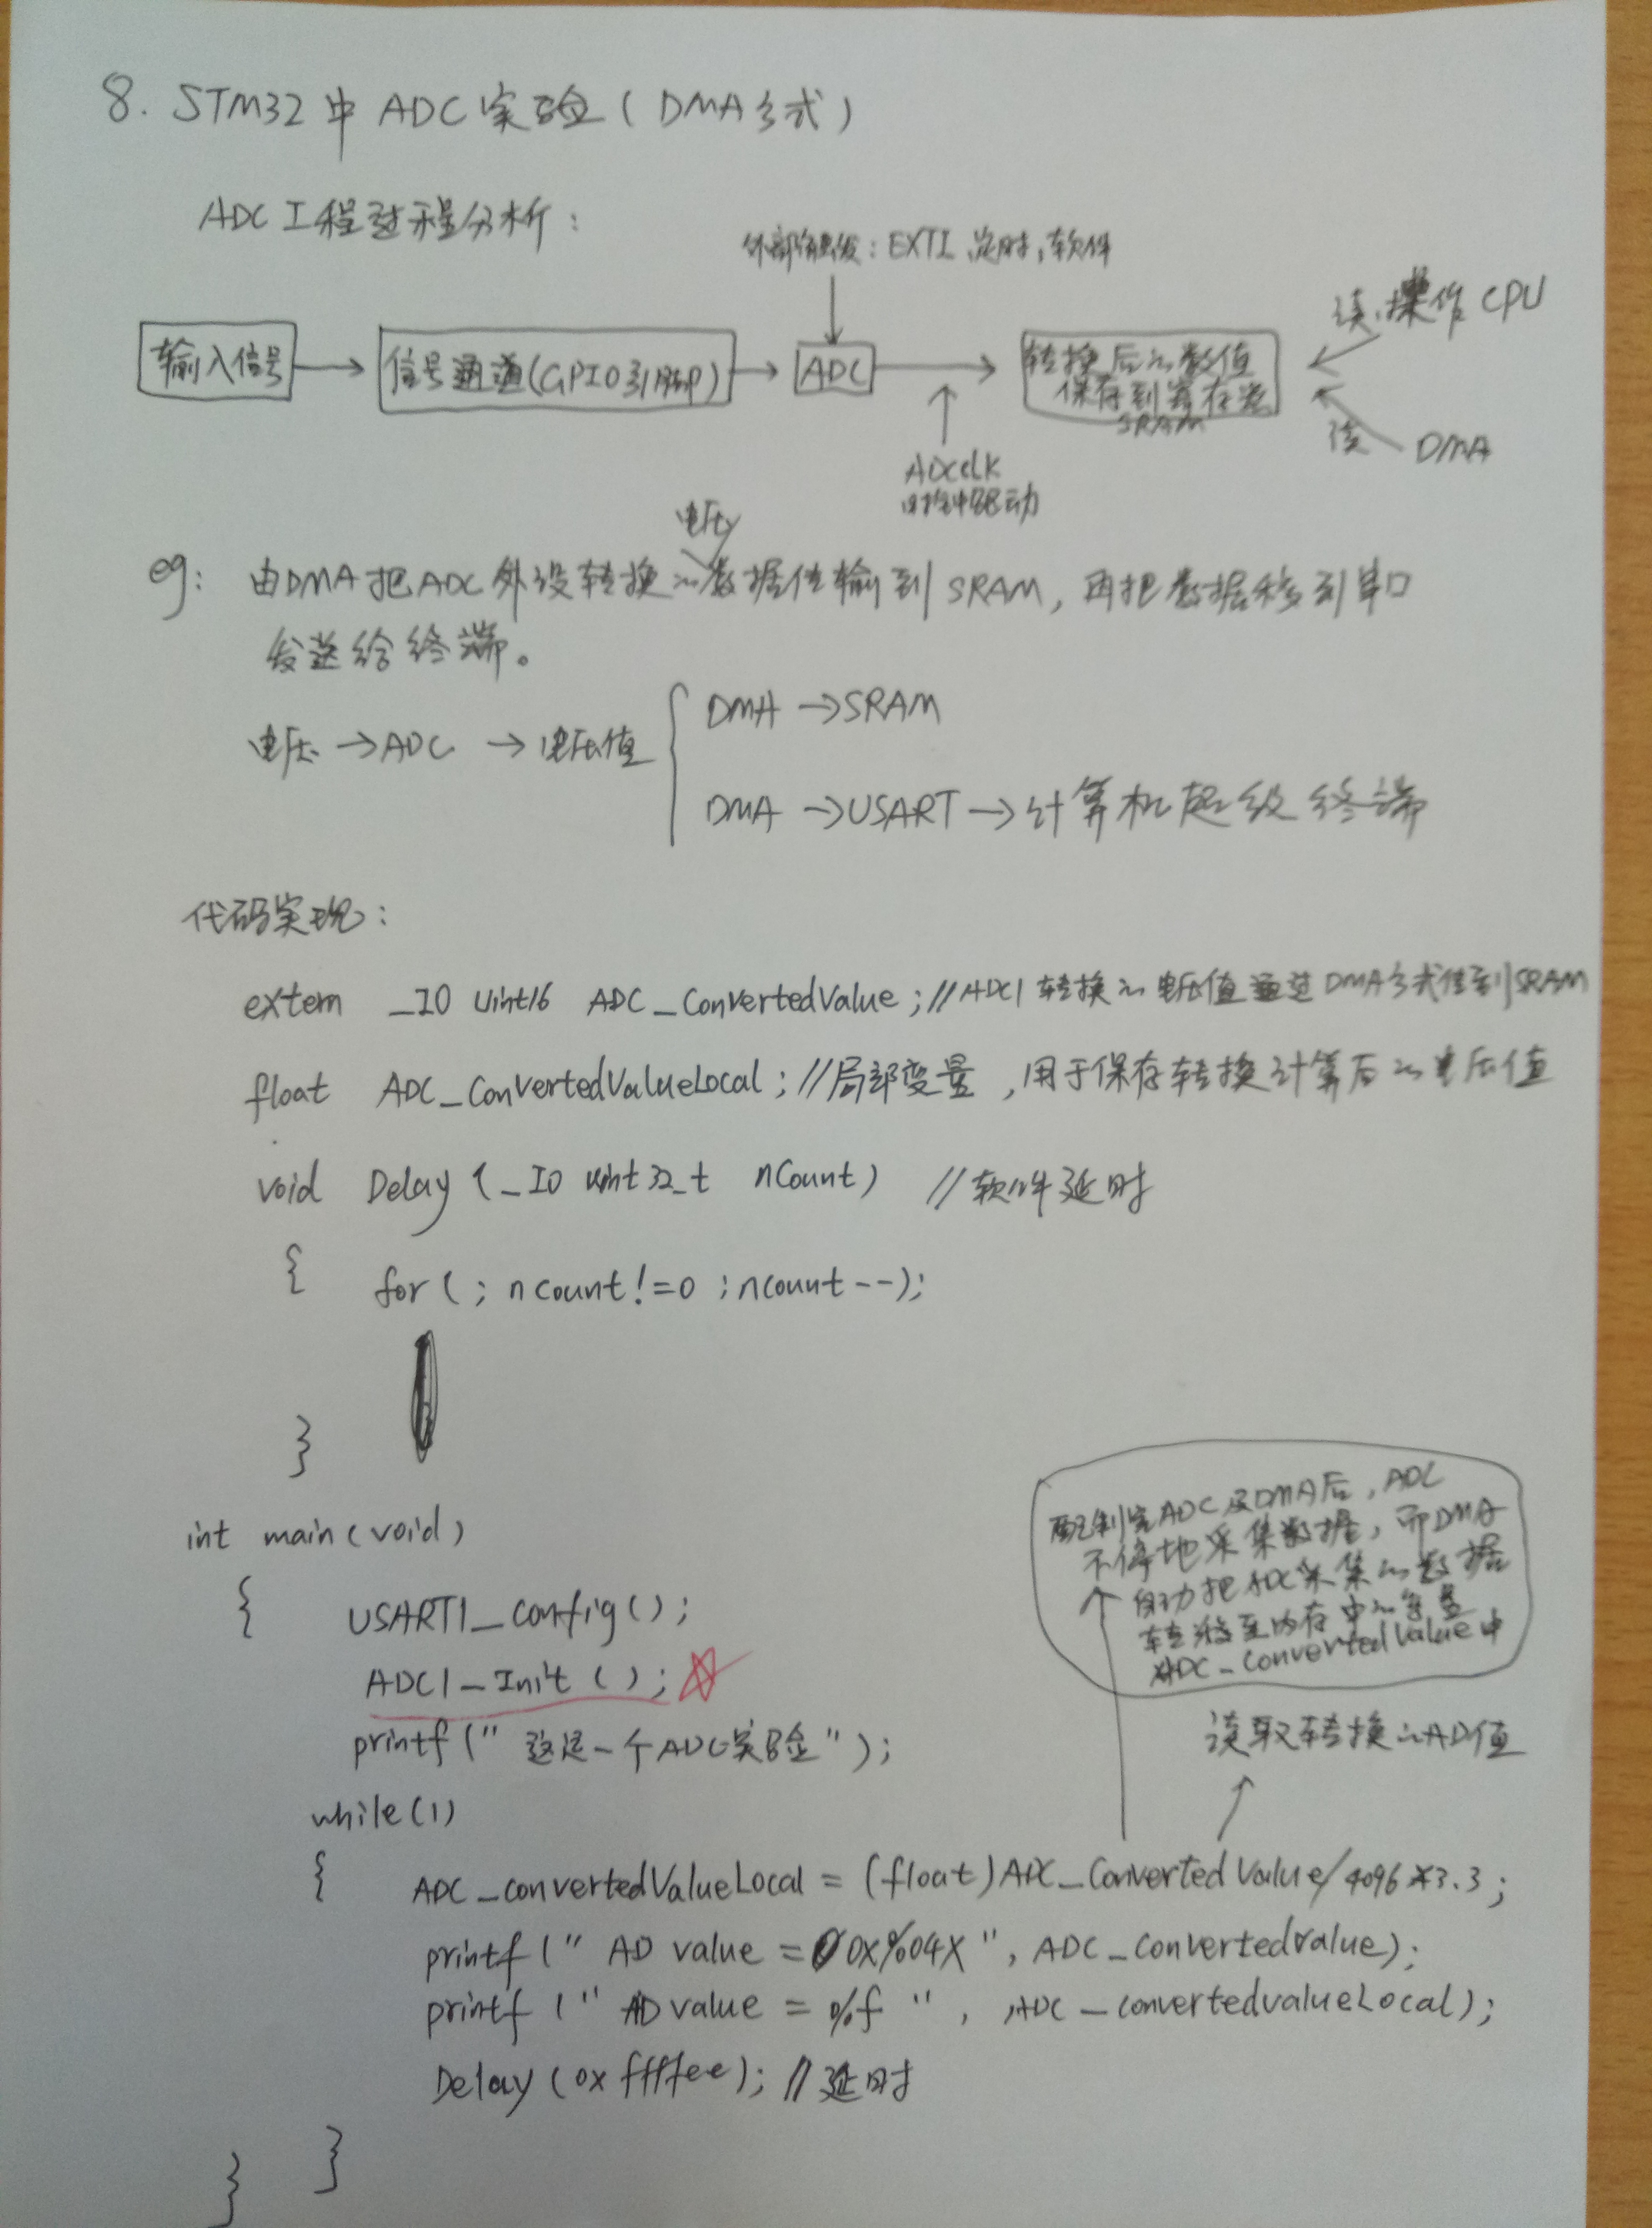 8. STM32中ADC实验(DMA方式)
ADC工程过程分析:
外部触发:EXTI,定时,软件
读,操作 CPU
输入信号
信号通道(GPIO引脚)
ADC
转换后的数值
保存到寄存器
SRAM
读 DMA
ADCCLK
时钟驱动
电压
eg: 由DMA把ADC外设转换的数据传输到SRAM,再把数据移到串口
发送给终端。
电压→ADC→电压值
DMA→SRAM
DMA→USART→计算机超级终端
代码实现:
extern _IO uint16 ADC_ConvertedValue;//ADC1转换的电压值通过DMA方式传到SRAM
float ADC_ConvertedValueLocal;//局部变量,用于保存转换计算后的电压值
void Delay(_IO uint32_t nCount) //软件延时
{ for(; ncount!=0 ;ncount--);
}
int main(void)
{ USART1_Config();
ADC1_Init();
printf(" 这是一个ADC实验");
while(1)
配制完ADC及DMA后,ADC
不停地采集数据,而DMA
自动把ADC采集的数据
转移至内存中的变量
ADC_ConvertedValue中
读取转换的AD值
{ ADC_ConvertedValueLocal = (float)ADC_ConvertedValue/4096*3.3;
printf(" AD value = 0x%04X", ADC_Convertedvalue);
printf(" AD value = %f ", ADC_convertedvalueLocal);
Delay(0xffffee); //延时
}
}